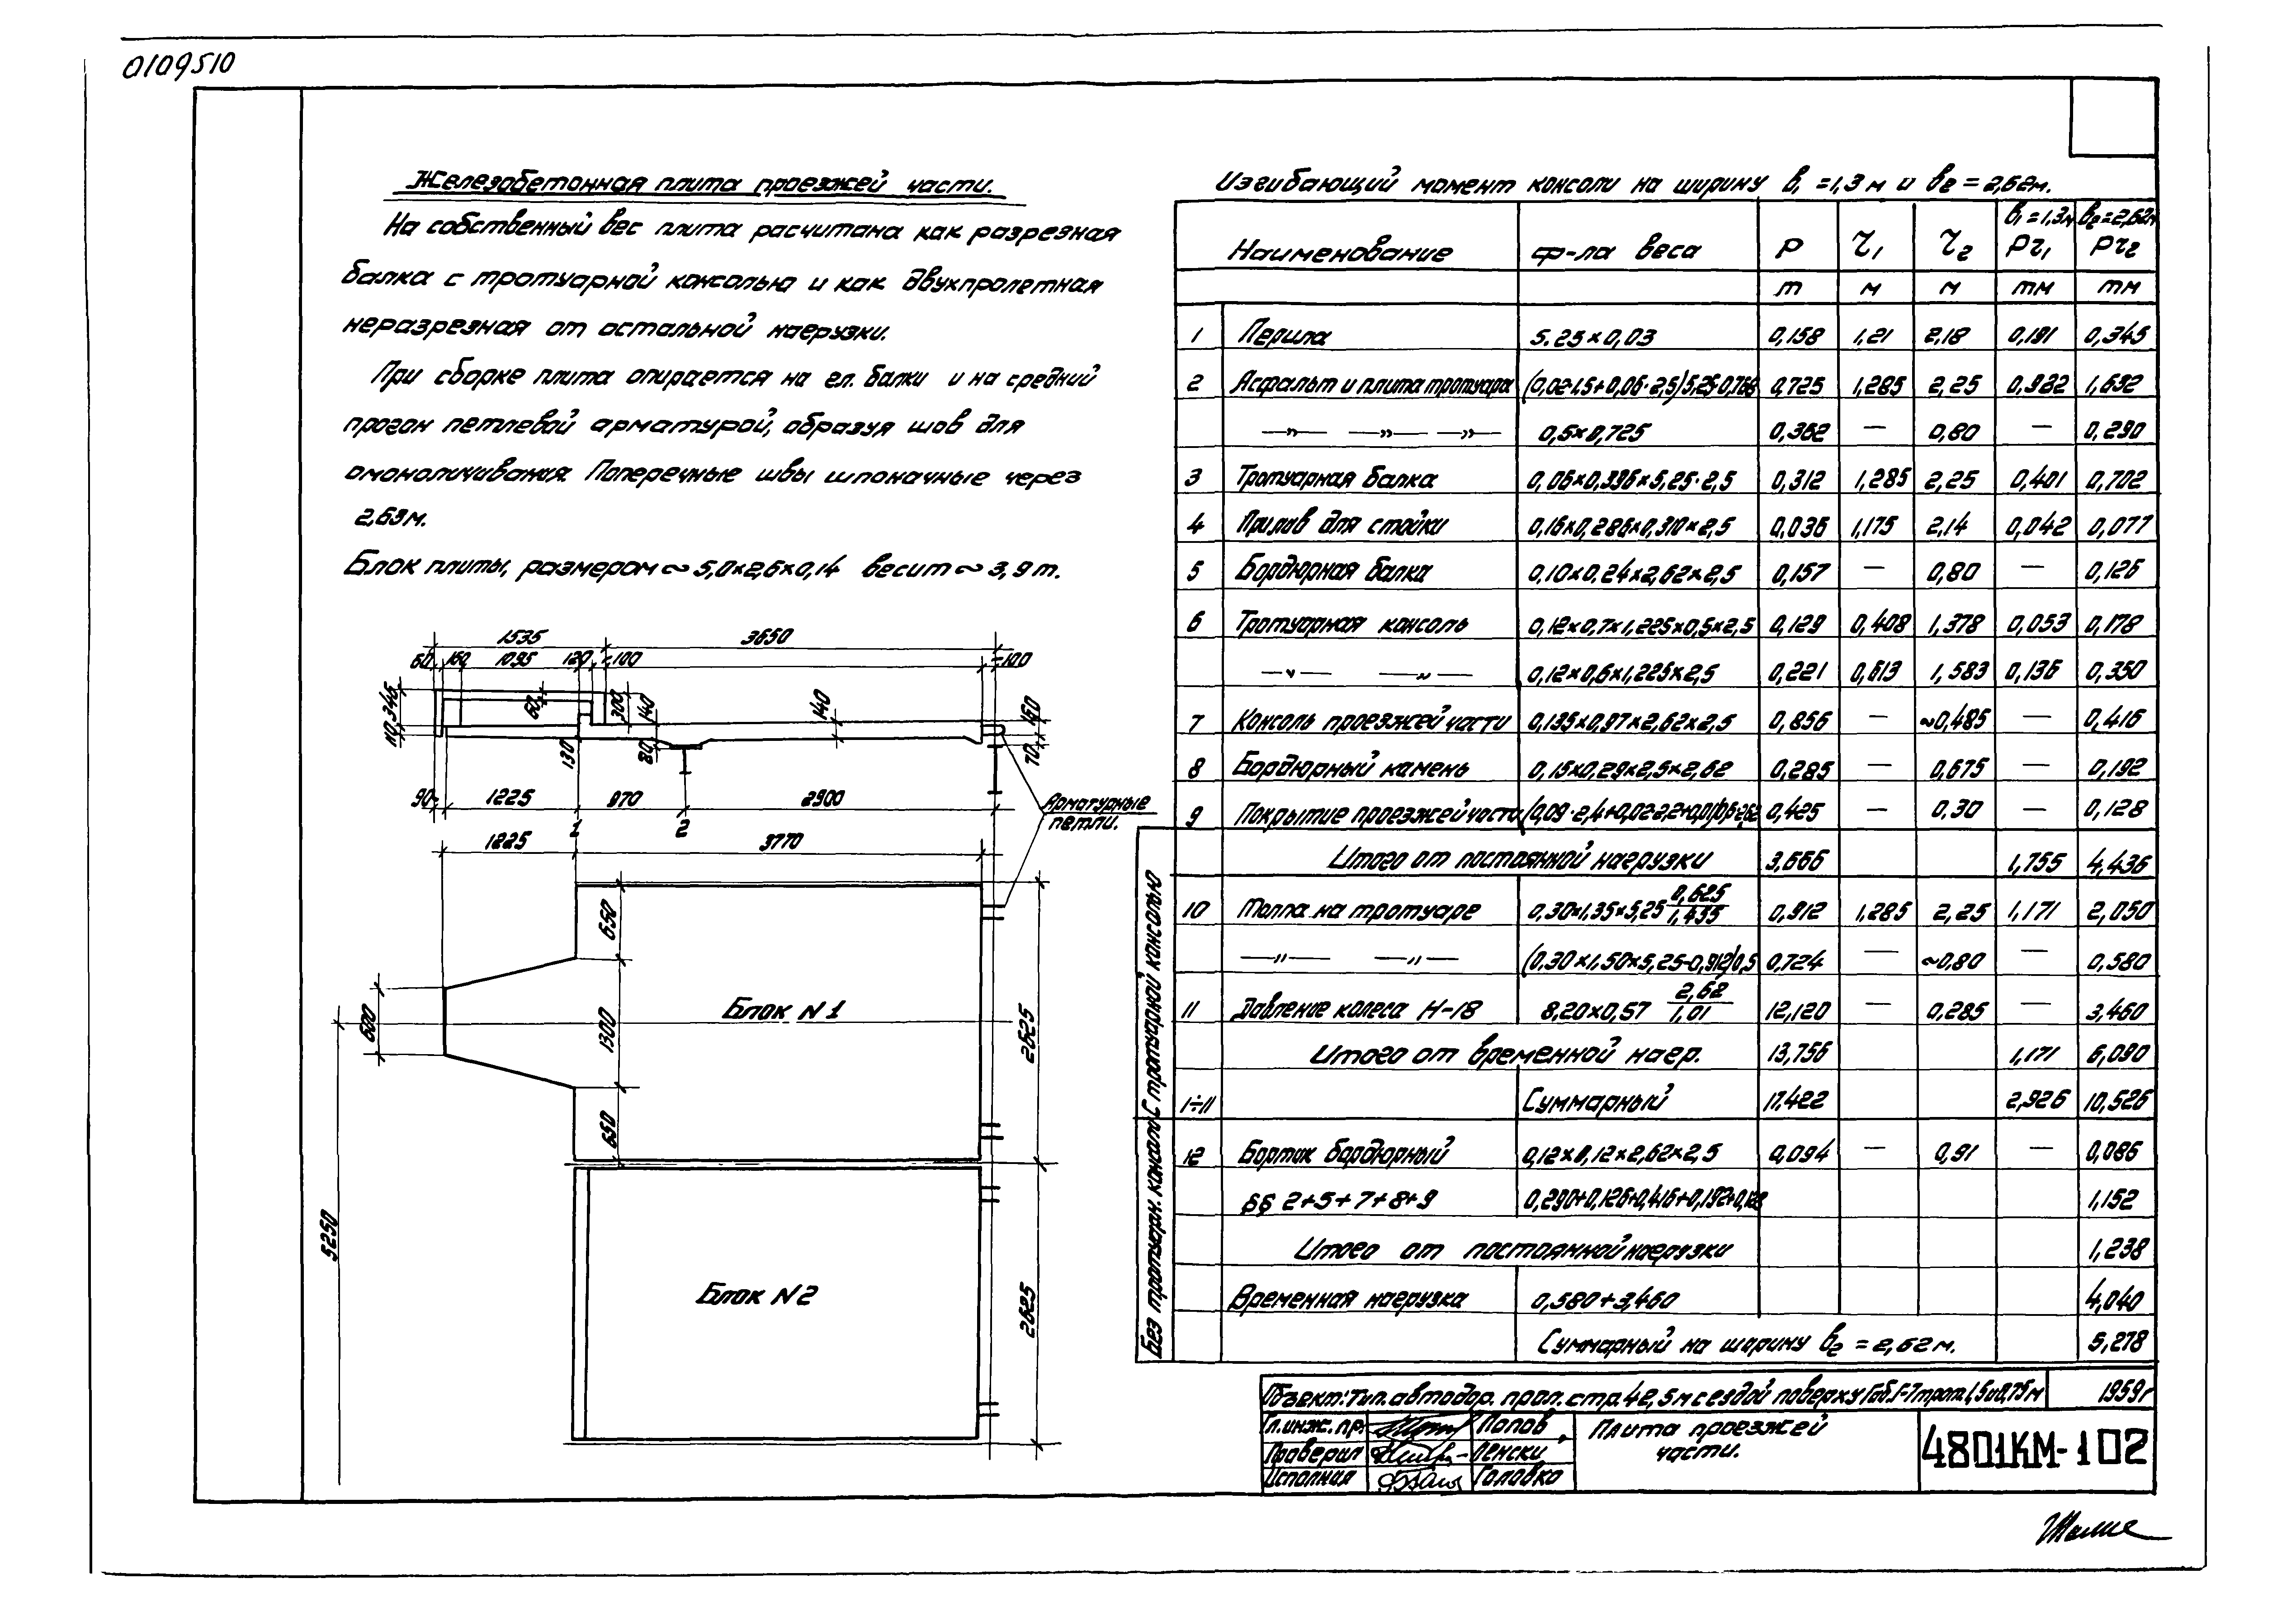 0109510
Железобетонная плита проезжей части.
На собственный вес плита расчитана как разрезная
балка с тротуарной консолью и как двухпролетная
неразрезная от остальной нагрузки.
При сборке плита опирается на гл. балки и на средний
прогон петлевой арматурой, образуя шов для
омоноличивания. Поперечные швы шпоночные через
2,63м.
Блок плиты, размером ~ 5,0×2,6×0,14 весит ~ 3,9т.
1535 3650
60 160 1095 120 100 100
345 110 60 300 140 140 150
130 80 70
90 1225 970 2900
1 2
Арматурные
петли.
1225 3770
650
600 1300 2625
Блок N1
650
5250
Блок N2
2625
Изгибающий момент консоли на ширину b₁ =1,3м и b₂ = 2,62м.
b₁ =1,3м b₂=2,62м
Наименование ф-ла веса P τ₁ τ₂ Pτ₁ Pτ₂
т м м тм тм
1 Перила 5.25×0,03 0,158 1,21 2,18 0,191 0,345
2 Асфальт и плита тротуара (0,02·1,5+0,06·2,5)5,25·0,768 0,725 1,285 2,25 0,932 1,632
—„— —„— —„— 0,5×0,725 0,362 — 0,80 — 0,290
3 Тротуарная балка 0,06×0,396×5,25·2,5 0,312 1,285 2,25 0,401 0,702
4 Прилив для стойки 0,16×0,286×0,310×2,5 0,036 1,175 2,14 0,042 0,077
5 Бордюрная балка 0,10×0,24×2,62×2,5 0,157 — 0,80 — 0,126
6 Тротуарная консоль 0,12×0,7×1,225×0,5×2,5 0,129 0,408 1,378 0,053 0,178
—„— —„— 0,12×0,6×1,225×2,5 0,221 0,613 1,583 0,136 0,350
7 Консоль проезжей части 0,135×0,97×2,62×2,5 0,856 — ~0,485 — 0,416
8 Бордюрный камень 0,15×0,29×2,5×2,62 0,285 — 0,675 — 0,192
9 Покрытие проезжей части 0,425 — 0,30 — 0,128
Итого от постоянной нагрузки 3,666 1,755 4,436
10 Толпа на тротуаре 0,30×1,35×5,25 0,625/1,435 0,912 1,285 2,25 1,171 2,050
—„— —„— (0,30×1,50×5,25-0,912)0,5 0,724 — ~0,80 — 0,580
11 Давление колеса Н-18 8,20×0,57 2,62/1,01 12,120 — 0,285 — 3,460
Итого от временной нагр. 13,756 1,171 6,090
1÷11 Суммарный 17,422 2,926 10,526
12 Бортик бордюрный 0,12×0,12×2,62×2,5 0,094 — 0,91 — 0,086
§§ 2+5+7+8+9 0,290+0,126+0,416+0,192+0,128 1,152
Итого от постоянной нагрузки 1,238
Временная нагрузка 0,580+3,460 4,040
Суммарный на ширину b₂ = 2,62м. 5,278
С тротуарной консолью
Без тротуарн. консоли
Объект: Тип. автодор. прол. стр. 42,5м с ездой поверху Габ. Г-7 трот. 1,5 и 0,75м 1959г
Гл. инж. пр. Попов Плита проезжей
Проверил Ленски части. 4801КМ-102
Исполнил Головко